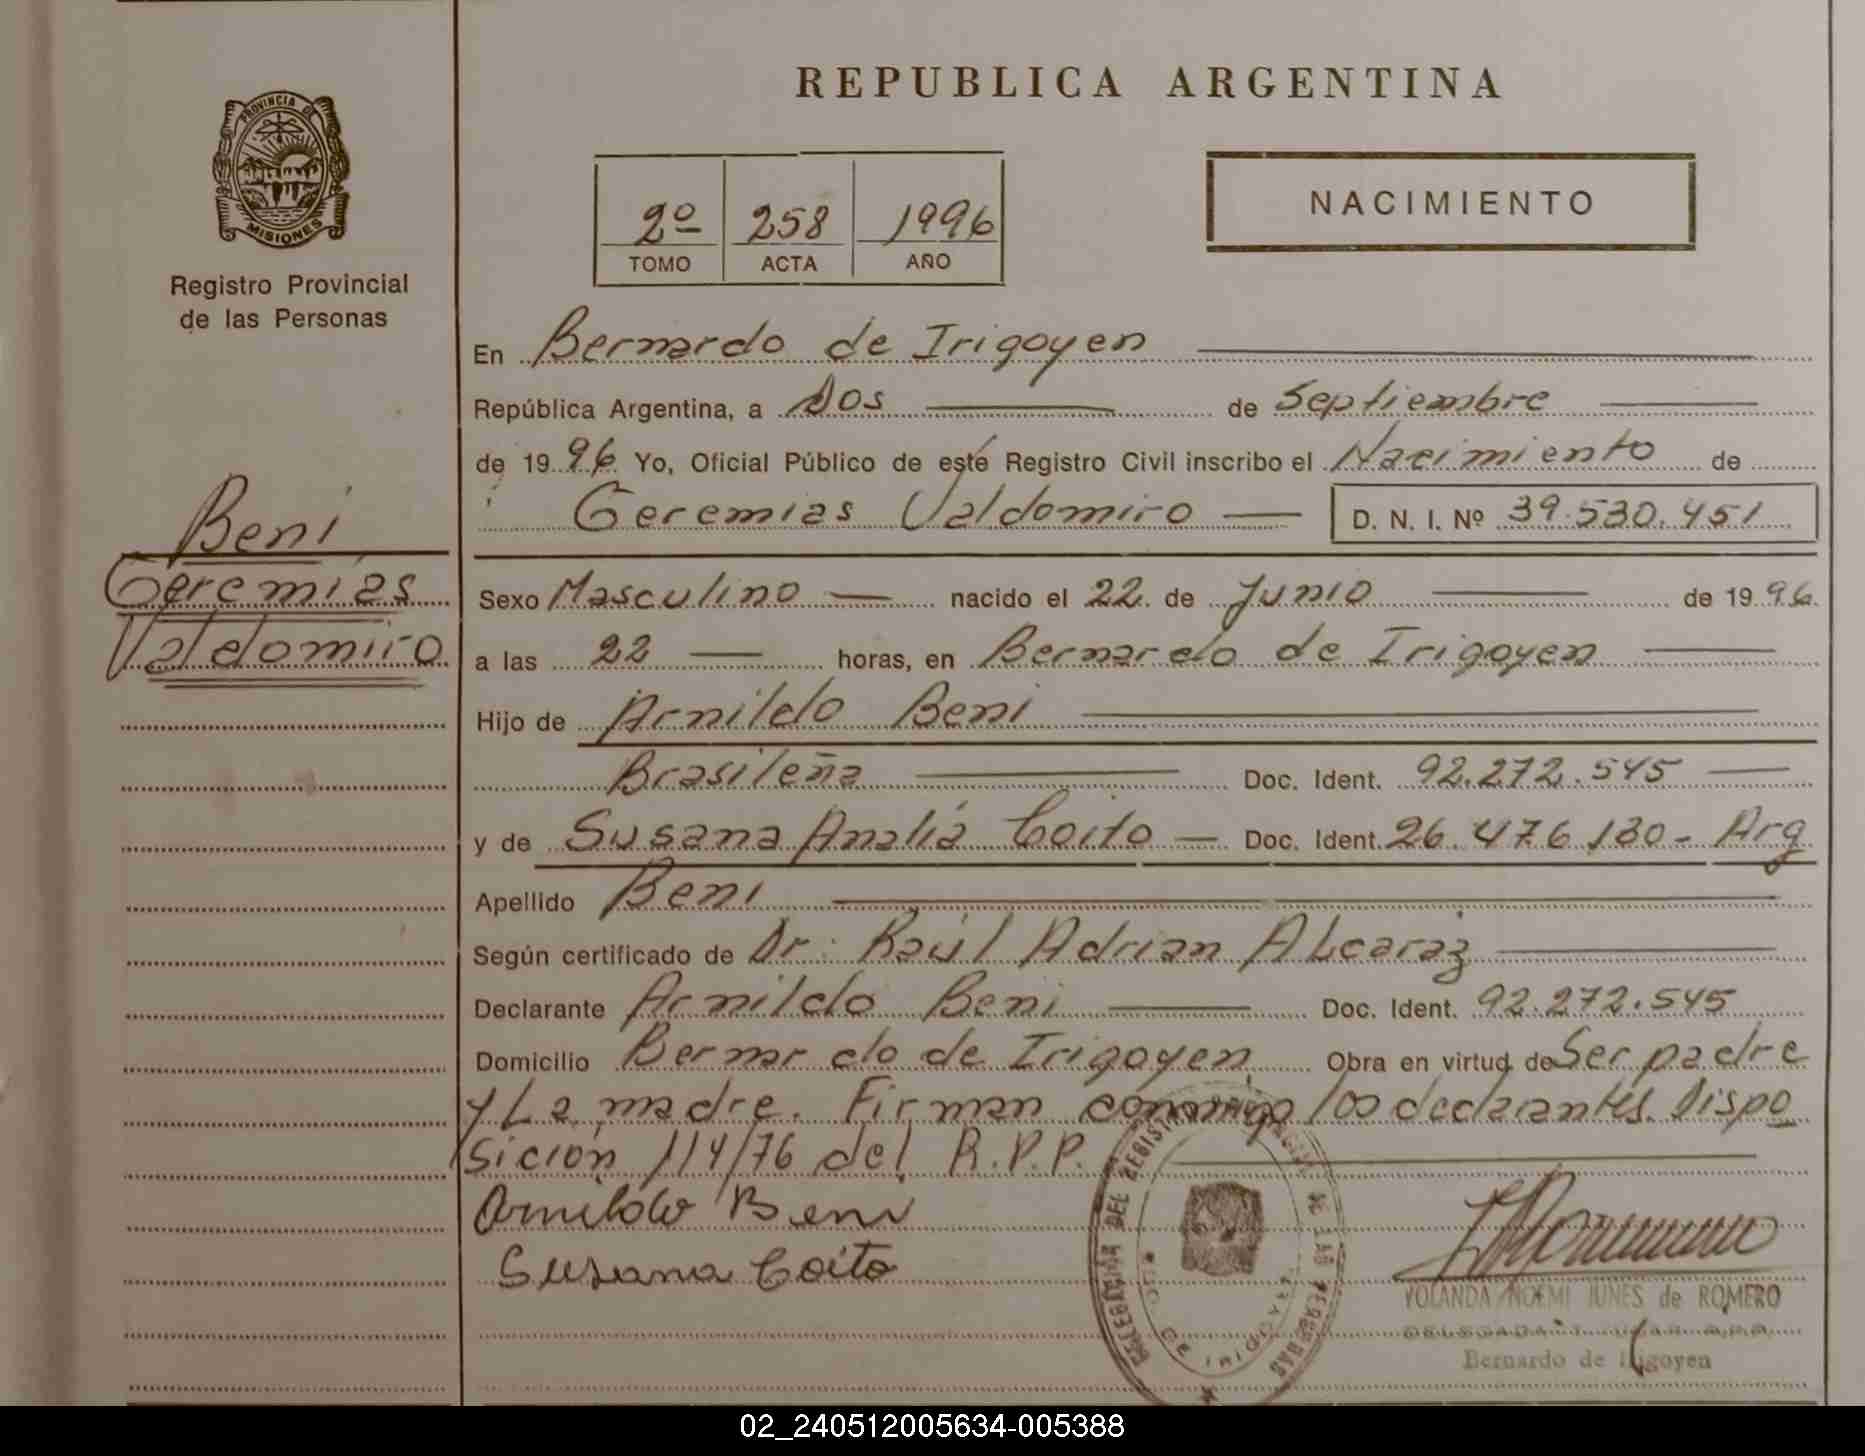 REPUBLICA ARGENTINA
PROVINCIA DE
MISIONES
Registro Provincial
de las Personas
2º 258 1996
TOMO ACTA AÑO
NACIMIENTO
En Bernardo de Irigoyen
República Argentina, a Dos de Septiembre
de 1996 Yo, Oficial Público de este Registro Civil inscribo el Nacimiento de
Geremias Valdomiro D. N. I. Nº 39.530.451
Beni
Geremias
Valdomiro
Sexo Masculino nacido el 22 de Junio de 1996
a las 22 horas, en Bernardo de Irigoyen
Hijo de Arnildo Beni
Brasileña Doc. Ident. 92.272.545
y de Susana Analía Coito Doc. Ident. 26.476.130 - Arg
Apellido Beni
Según certificado de Dr. Raúl Adrian ALcaraz
Declarante Arnildo Beni Doc. Ident. 92.272.545
Domicilio Bernardo de Irigoyen Obra en virtud de Ser padre
y La madre. Firman conmigo los declarantes. Dispo
sición 114/76 del R.P.P.
Arnildo Beni
Susana Coito
DEL REGISTRO DE LAS PERSONAS
DE IRIGOYEN
YOLANDA NOEMI JUNES de ROMERO
Bernardo de Irigoyen
02_240512005634-005388